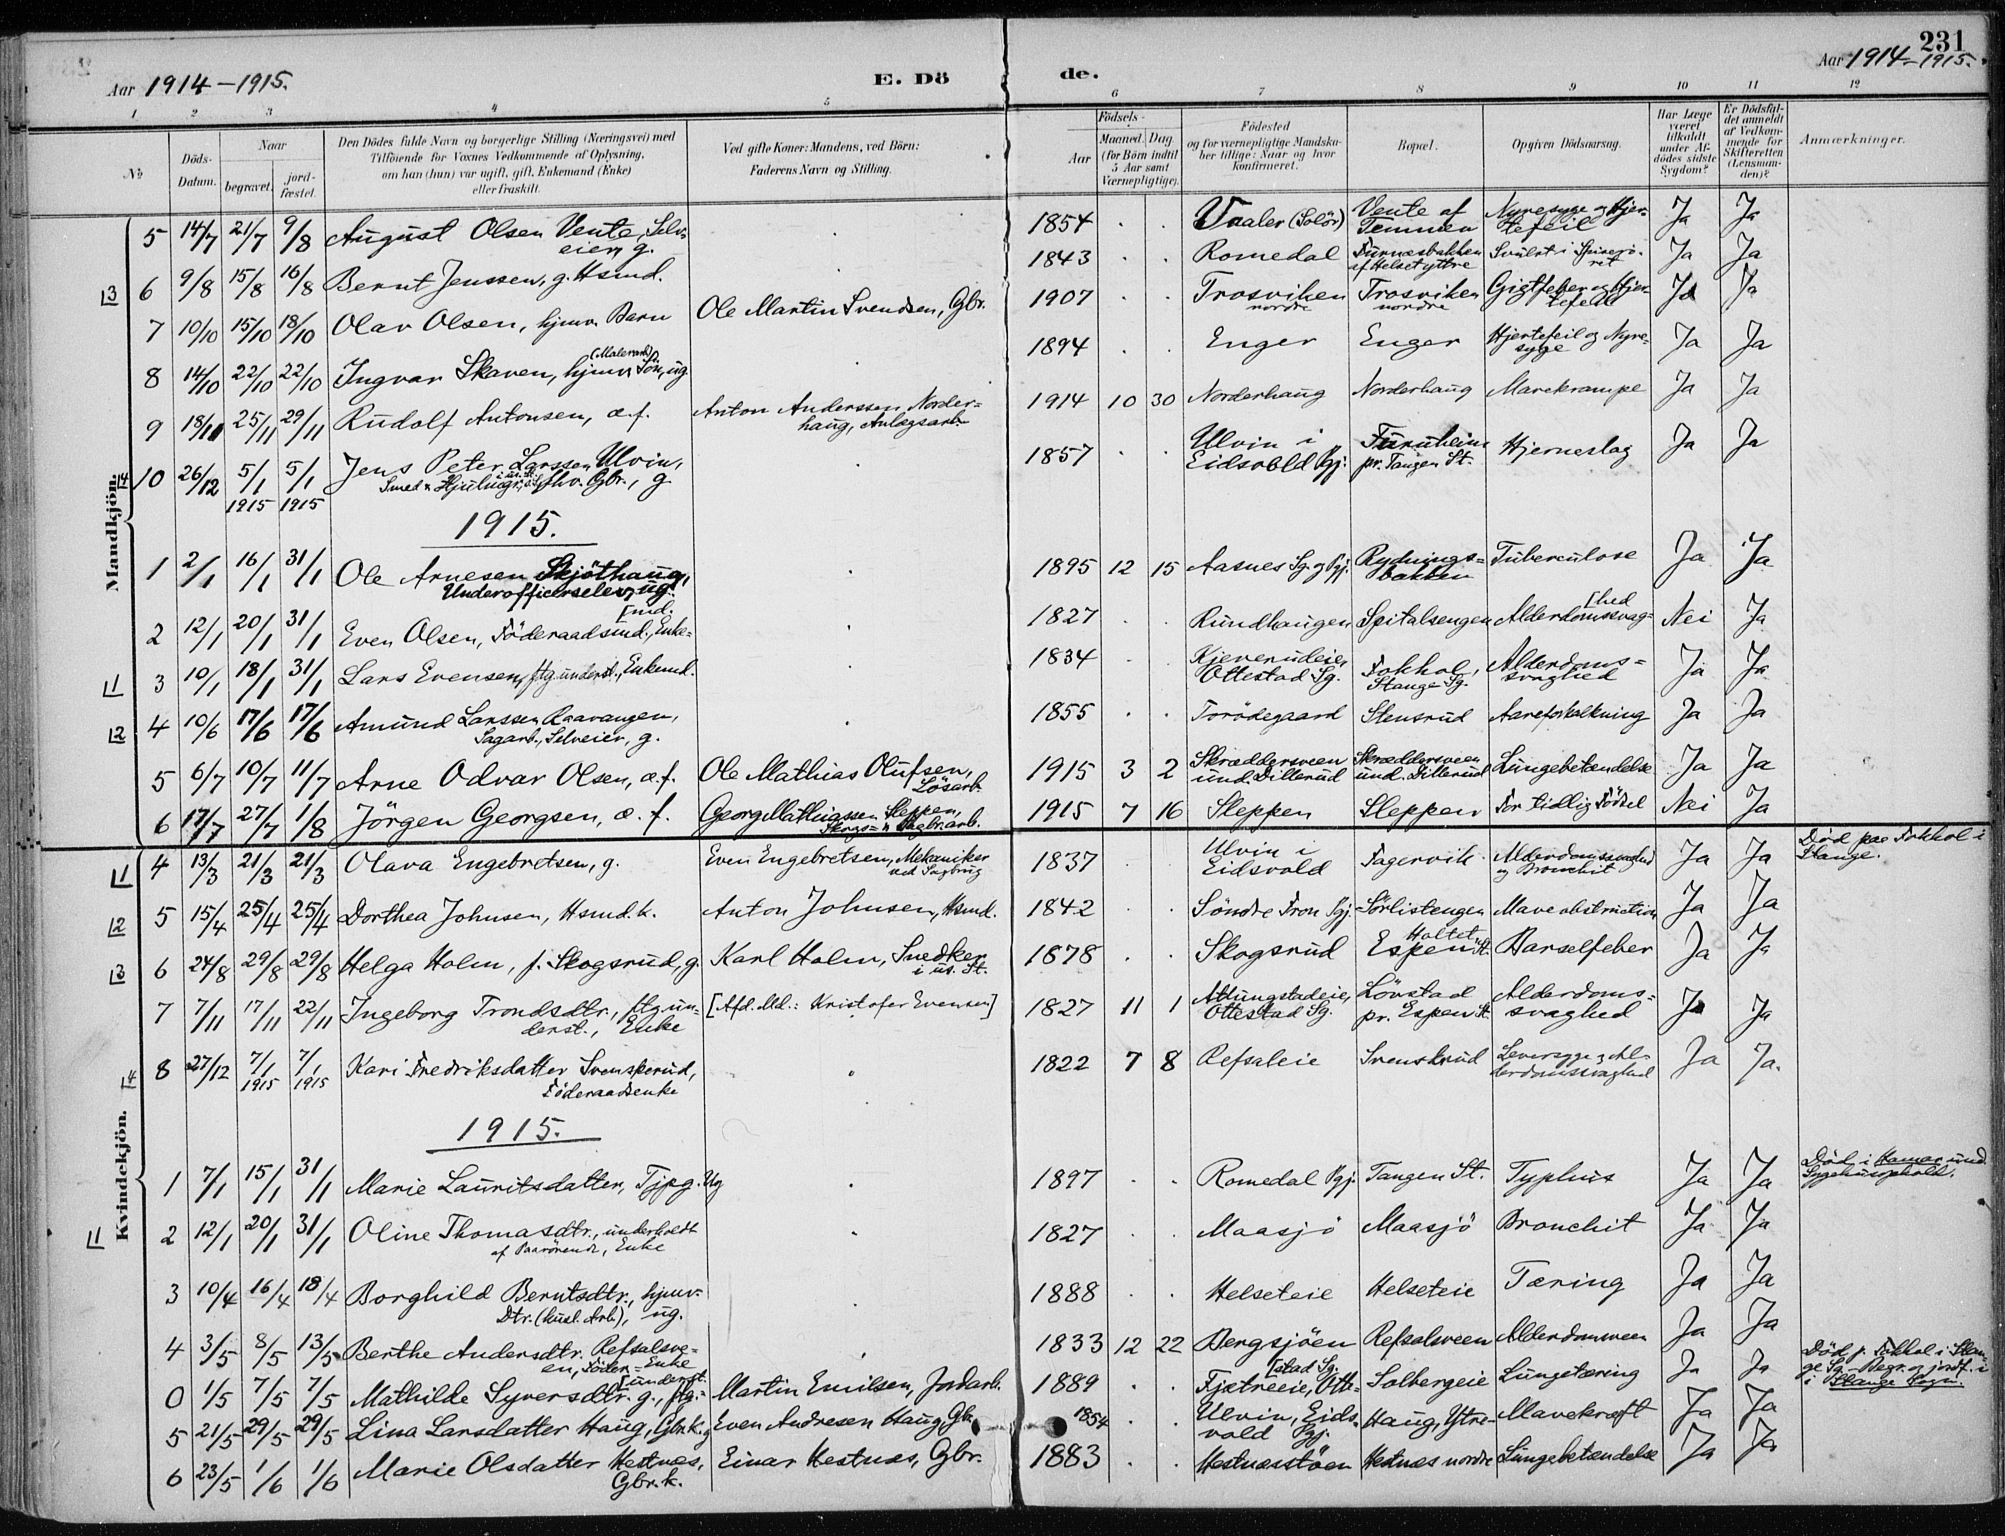 231
Aar 1914–1915.
E. Dö
de.
Aar 1914–1915.
1 2 3 4 5 6 7 8 9 10 11 12
№
Döds-Datum.
Naar
begravet.
jord-fæstet.
Den Dödes fulde Navn og borgerlige Stilling (Næringsvei) med
Tilföiende for Voxnes Vedkommende af Oplysning,
om han (hun) var ugift, gift, Enkemand (Enke)
eller fraskilt.
Ved gifte Koner: Mandens, ved Börn:
Faderens Navn og Stilling.
Födsels-
Aar
Maaned. Dag
(for Börn indtil
5 Aar samt
Værnepligtige).
Födested
og for værnepligtige Mandskaber tillige: Naar og hvor
konfirmeret.
Bopæl.
Opgiven Dödsaarsag.
Har Læge
været
tilkaldt
under Afdödes sidste
Sygdom?
Er Dödsfaldet anmeldt
af Vedkommende for
Skifteretten
(Lensmanden)?
Anmerkninger.
Mandkjön.
5 14/7 21/7 9/8 August Olsen Vente, Selveier, g. 1854 Vaaler (Solör) Vente af Temmen Nyresyge og Hjertefeil Ja Ja
6 9/8 15/8 16/8 Bernt Jenssen, g. Hsmd. 1843 Romedal Furnæsbakken af Helset yttre Svulst i Spiserö-ret Ja Ja
13 7 10/10 15/10 18/10 Olav Olsen, hjmv. Barn Ole Martin Svendsen, Gbr. 1907 Trosviken nordre Trosviken nordre Gigtfeber og Hjertefeil Ja Ja
8 14/10 22/10 22/10 Ingvar Skaven, hjmv. (Malerarb.) Sön, ug. 1894 Enger Enger Hjertefeil og Nyre-syge Ja Ja
9 18/11 25/11 29/11 Rudolf Antonsen, æ.f. Anton Anderssen Norder-haug, Anlægsarb. 1914 10 30 Norderhaug Norderhaug Mavekrampe Ja Ja
14 10 26/12 5/1 1915 5/1 1915 Jens Peter Larssen Ulvin, Smed & Hjulmgr., Gbr., g. 1857 Ulvin i Eidsvold Pgj. Furuheim pr. Tangen St. Hjerneslag Ja Ja
1915.
1 2/1 16/1 31/1 Ole Arnesen Skjöthaug, Underofficerselev, ug. 1895 12 15 Aasnes Sg. og Pgj. Rydnings-bakken Tuberculose Ja Ja
2 12/1 20/1 31/1 Even Olsen, Föderaadsmd., Enke-[md. 1827 Rundhaugen Spitalsengen Alderdomssvag-[hed Nei Ja
11 3 10/1 18/1 31/1 Lars Evensen, ftg.underst., Enkemd. 1834 Kjeverudeie, Ottestad Sg. Fokhol, Stange Sg. Alderdoms-svaghed Ja Ja
12 4 10/6 17/6 17/6 Amund Larssen Raavangen, Sagarb., Selveier, g. 1855 Torödegaard Stensrud Aareforkalkning Ja Ja
5 6/7 10/7 11/7 Arne Odvar Olsen, æ.f. Ole Mathias Olufsen, Lösarb. 1915 3 2 Skræddersveen und. Dillerud Skræddersveen und. Dillerud Lungebetændelse Ja Ja
6 17/7 27/7 1/8 Jörgen Georgsen, æ.f. Georg Mathiassen Sleppen, Skogs- & Sagbr.arb. 1915 7 16 Sleppen Sleppen For tidlig Födsel Nei Ja
Kvindekjön.
11 4 13/3 21/3 21/3 Olava Engebretsen, g. Even Engebretsen, Mekaniker ved Sagbrug 1837 Ulvin i Eidsvold Fagervik Alderdomssvaghed og Bronchit Ja Ja Död paa Fokhol i Stange.
12 5 15/4 25/4 25/4 Dorthea Johnsen, Hsmd.k. Anton Johnsen, Hsmd. 1842 Söndre Fron Pgj. Sörlistengen Maveobstruction Ja Ja
13 6 24/8 29/8 29/8 Helga Holm, f. Skogsrud, g. Karl Holm, Snedker i us. St. 1878 Skogsrud Holtet Espen St. Barselfeber Ja Ja
7 7/11 17/11 22/11 Ingeborg Trondsdtr., ftg.un-derst., Enke [Afd. Md.: Kristofer Evensen] 1827 11 1 Atlungstadeie, Ottestad Sg. Lövstad pr. Espen St. Alderdoms-svaghed Ja Ja
14 8 27/12 7/1 1915 7/1 1915 Kari Fredriksdatter Svenskerud, Föderaadsenke 1822 7 8 Refsaleie Svenskrud Leversyge og Al-derdomssvaghed Ja Ja.
1915.
1 7/1 15/1 31/1 Marie Lauritsdatter, Tjpg. Ug 1897 Romedal Pgj. Tangen St. Typhus Ja Ja Död i Hamar und. Sygehusophold.
11 2 12/1 20/1 31/1 Oline Thomasdtr., underholdt af Paarörende, Enke 1827 Maasjö Maasjö Bronchit Ja Ja
3 10/4 16/4 18/4 Borghild Berntsdtr., hjmv. Dtr. (husl. Arb), ug. 1888 Helseteie Helseteie Tæring Ja Ja
4 3/5 8/5 13/5 Berthe Andersdtr. Refsalsve-en, Föder-Enke 1833 12 22 Bergsjöen Refsalsveen Alderdomsveen Ja Ja
0 1/5 7/5 7/5 Mathilde Syversdtr. g., ftg.-[underst. Martin Emilsen, Jordarb. 1889 Fjætreeie, Otte-[stad Sg. Solbergeie Lungetæring Ja Ja Död p. Fokhol i Stan-ge Sg. Begr. og jordf. i Stange Sogn.
5 21/5 29/5 29/5 Lina Larsdatter Haug, Gbr.k. g Even Andresen Haug Gbr. 1854 Ulvin, Eids-vold Pgj. Haug, Ytre- Mavekræft Ja Ja
6 23/5 1/6 1/6 Marie Olsdatter Hestnæs, Gbr.k. Einar Hestnæs, Gbr. 1883 Hestnæsstöen Hestnæs nordre Lungebetændelse Ja Ja